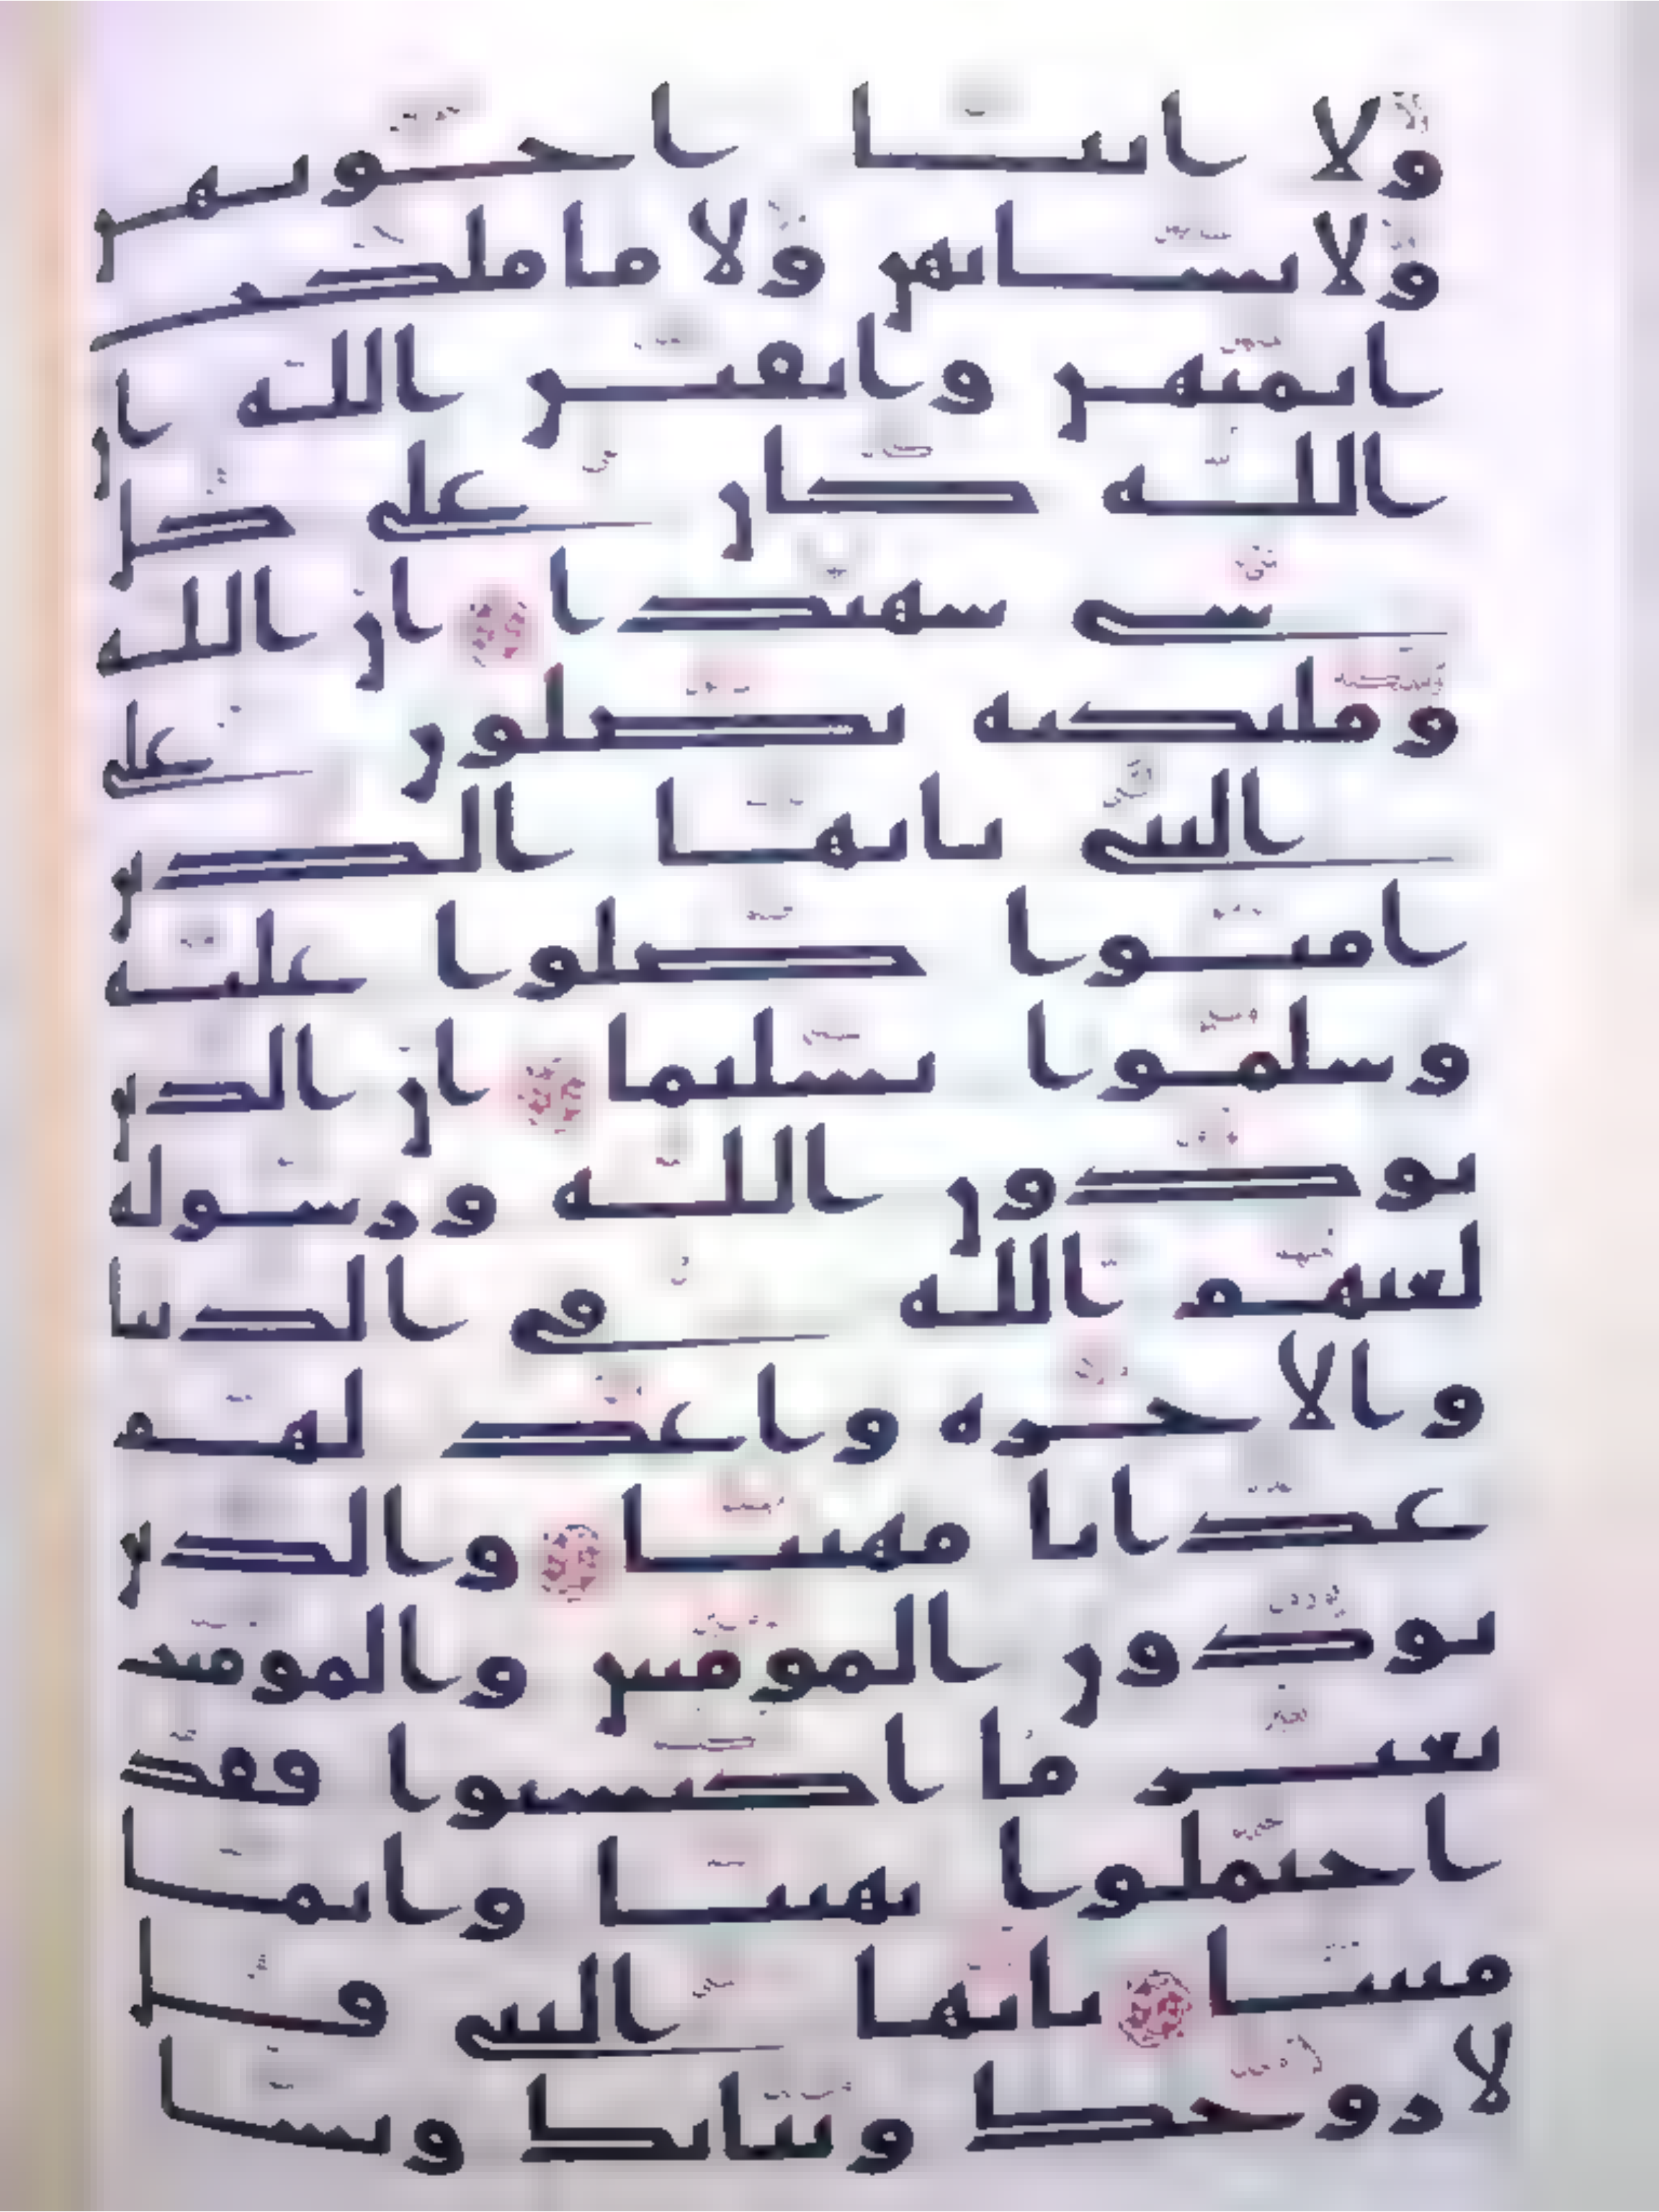 ولا ابنا اخوتهن
ولا نسائهن ولا ما ملكت
ايمنهن واتقين الله ان
الله كان على كل
شى شهيدا ان الله
وملئكته يصلون على
النبى يايها الذين
امنوا صلوا عليه
وسلموا تسليما ان الذين
يوذون الله ورسوله
لعنهم الله فى الدنيا
والاخرة واعد لهم
عذابا مهينا والذين
يوذون المومنين والمومنت
بغير ما اكتسبوا فقد
احتملوا بهتنا واثما
مبينا يايها النبى قل
لازوجك وبناتك ونسا